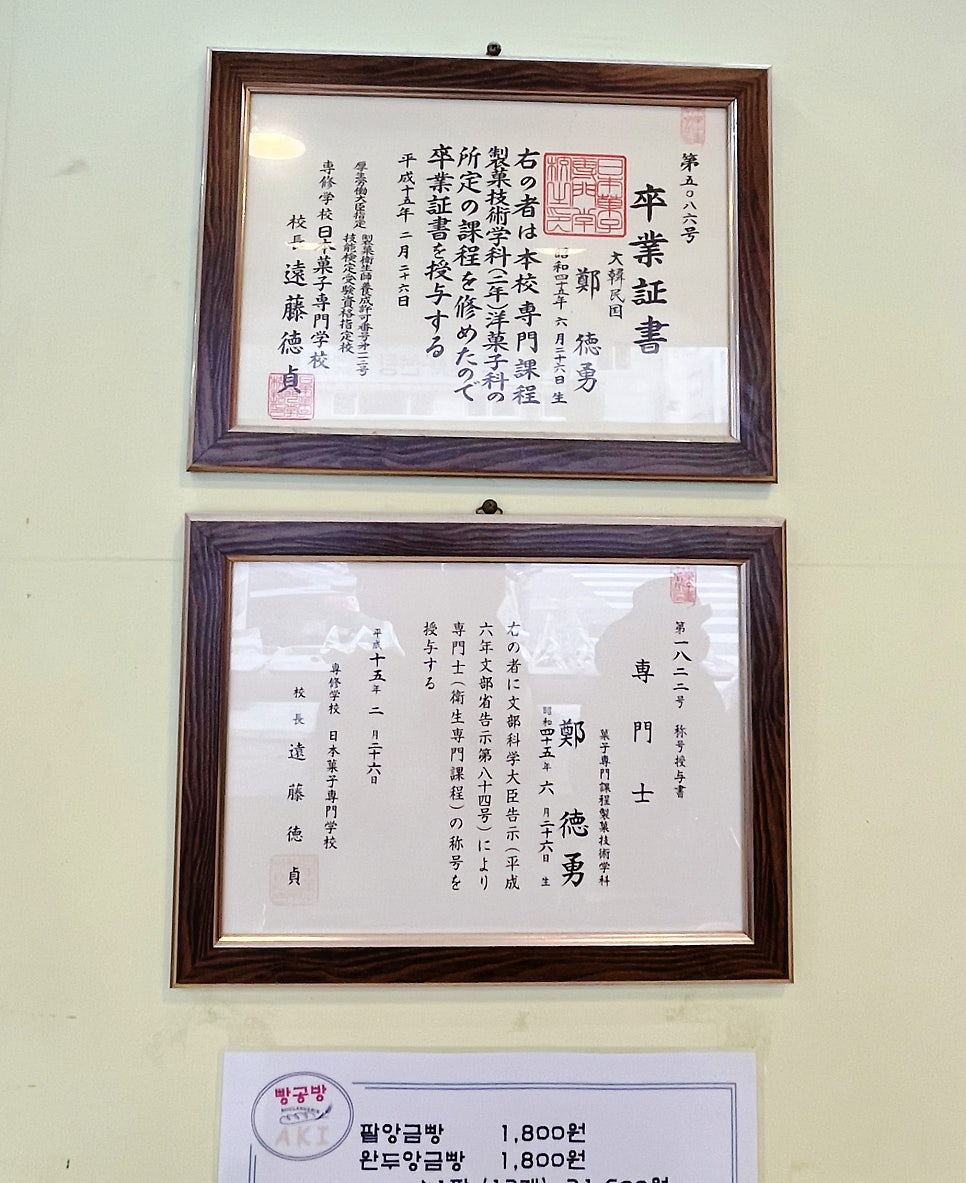 第五〇八六号
卒業証書
大韓民国
鄭 徳勇
昭和四十五年 六月二十六日 生
右の者は本校専門課程
製菓技術学科(二年)洋菓子科の
所定の課程を修めたので
卒業証書を授与する
平成十五年 二月二十六日
厚生労働大臣指定 製菓衛生師養成許可番号第二二号
技能検定受験資格指定校
専修学校 日本菓子専門学校
校長 遠藤徳貞
第一八二二号 称号授与書
専門士
菓子専門課程製菓技術学科
鄭 徳勇
昭和四十五年 六月二十六日 生
右の者に文部科学大臣告示(平成
六年文部省告示第八十四号)により
専門士(衛生専門課程)の称号を
授与する
平成十五年 二月二十六日
専修学校 日本菓子専門学校
校長 遠藤徳貞
빵공방
AKI
팥앙금빵 1,800원
완두앙금빵 1,800원